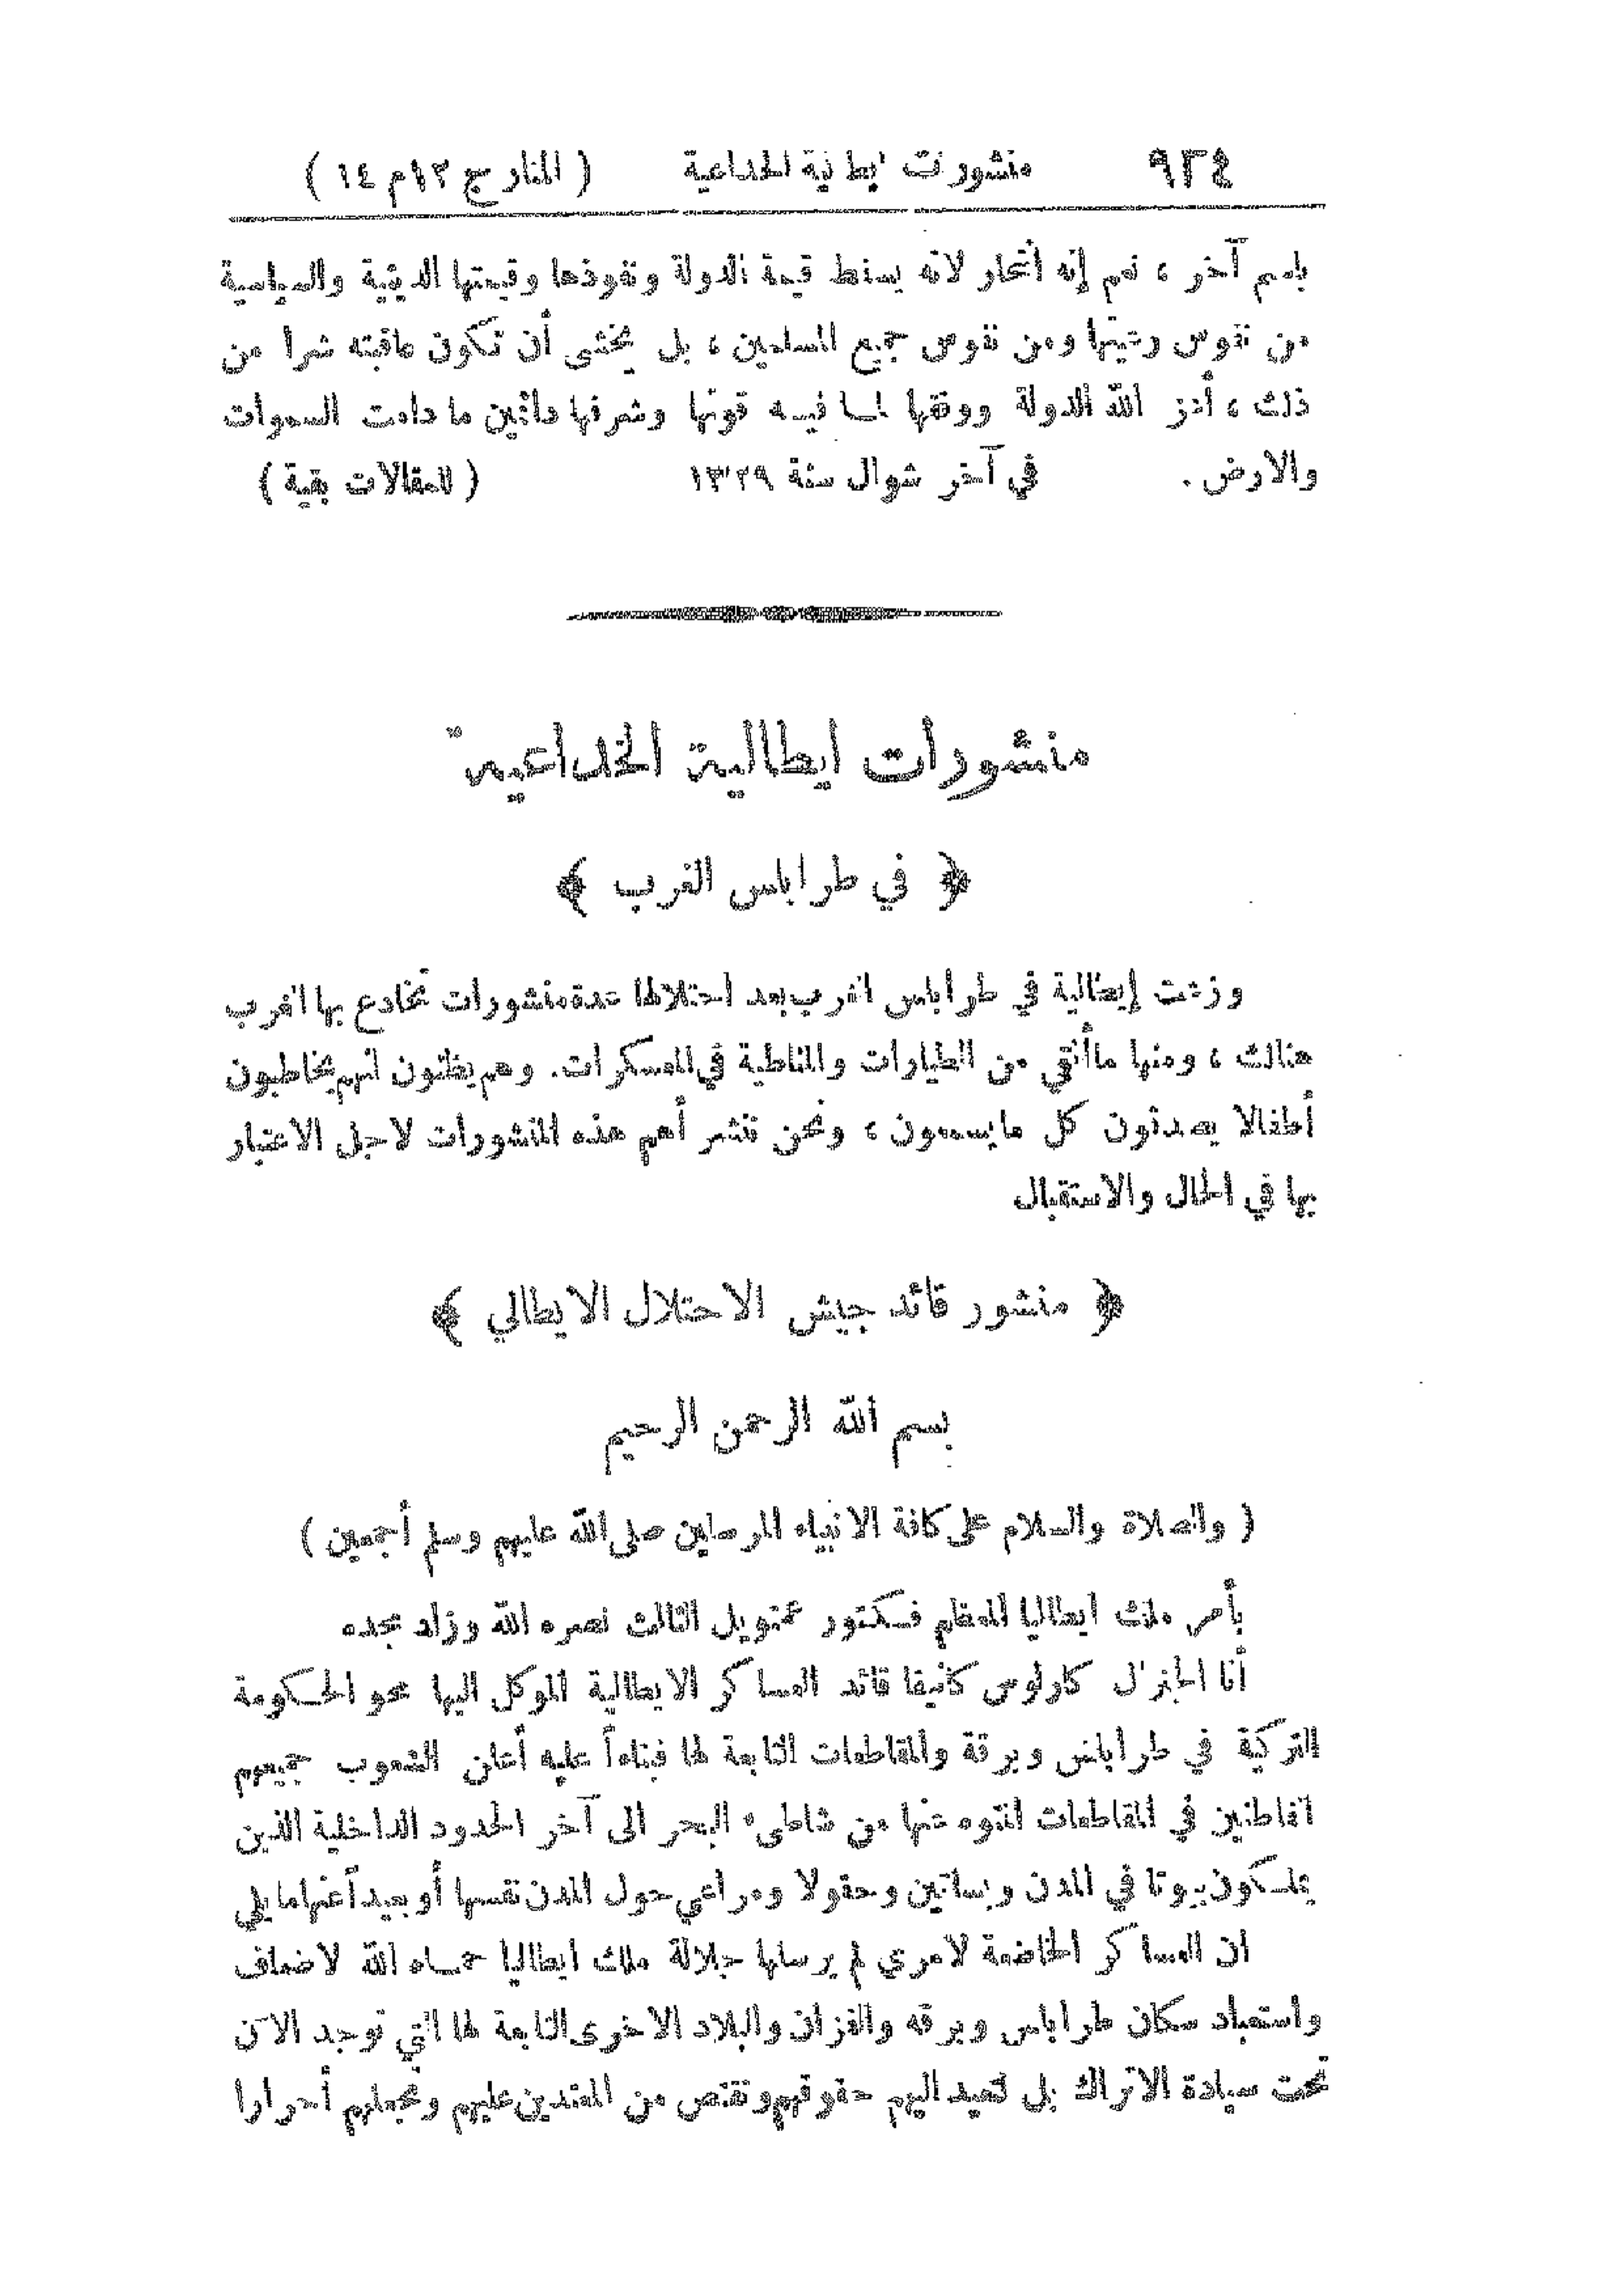 ٩٣٤ منشورات ايطالية الخداعية ( المنار ج ١٢ م ١٤ )
باسم آخر ، نعم إنه انتحار لانه يسقط قيمة الدولة ونفوذها وقيمتها الدينية والسياسية
من نفوس رعيتها ومن نفوس جميع المسلمين ، بل يخشى أن تكون عاقبته شرا من
ذلك ، أعز الله الدولة ووفقها لما فيه قوتها وشرفها دائمين ما دامت السموات
والارض . في آخر شوال سنة ١٣٢٩ ( للمقالات بقية )
منشورات ايطالية الخداعية
﴿ في طرابلس الغرب ﴾
وزعت إيطالية في طرابلس الغرب بعد احتلالها عدة منشورات تخادع بها العرب
هنالك ، ومنها ما ألقي من الطيارات والمناطيد في المعسكرات. وهم يظنون انهم يخاطبون
أطفالا يصدقون كل ما يسمعون ، ونحن ننشر أهم هذه المنشورات لاجل الاعتبار
بها في الحال والاستقبال
﴿ منشور قائد جيش الاحتلال الايطالي ﴾
بسم الله الرحمن الرحيم
( والصلاة والسلام على كافة الانبياء المرسلين صلى الله عليهم وسلم أجمعين )
بأمر ملك ايطاليا المعظم فكتور عمنويل الثالث نصره الله وزاد مجده
أنا الجنرال كارلوس كانيفا قائد العساكر الايطالية الموكل اليها محو الحكومة
التركية في طرابلس وبرقة والمقاطعات التابعة لها فبناءاً عليه أعلن الشعوب جميعهم
القاطنين في المقاطعات المنوه عنها من شاطىء البحر الى آخر الحدود الداخلية الذين
يملكون بيوتا في المدن وبساتين وحقولا ومراعي حول المدن نفسها أو بعيداً عنها ما يلي
ان العساكر الخاضعة لامري لم يرسلها جلالة ملك ايطاليا حماه الله لاضعاف
واستعباد سكان طرابلس وبرقه والفزان والبلاد الاخرى التابعة لها التي توجد الآن
تحت سيادة الاتراك بل لتعيد اليهم حقوقهم وتقتص من المعتدين عليهم وتجعلهم أحرارا